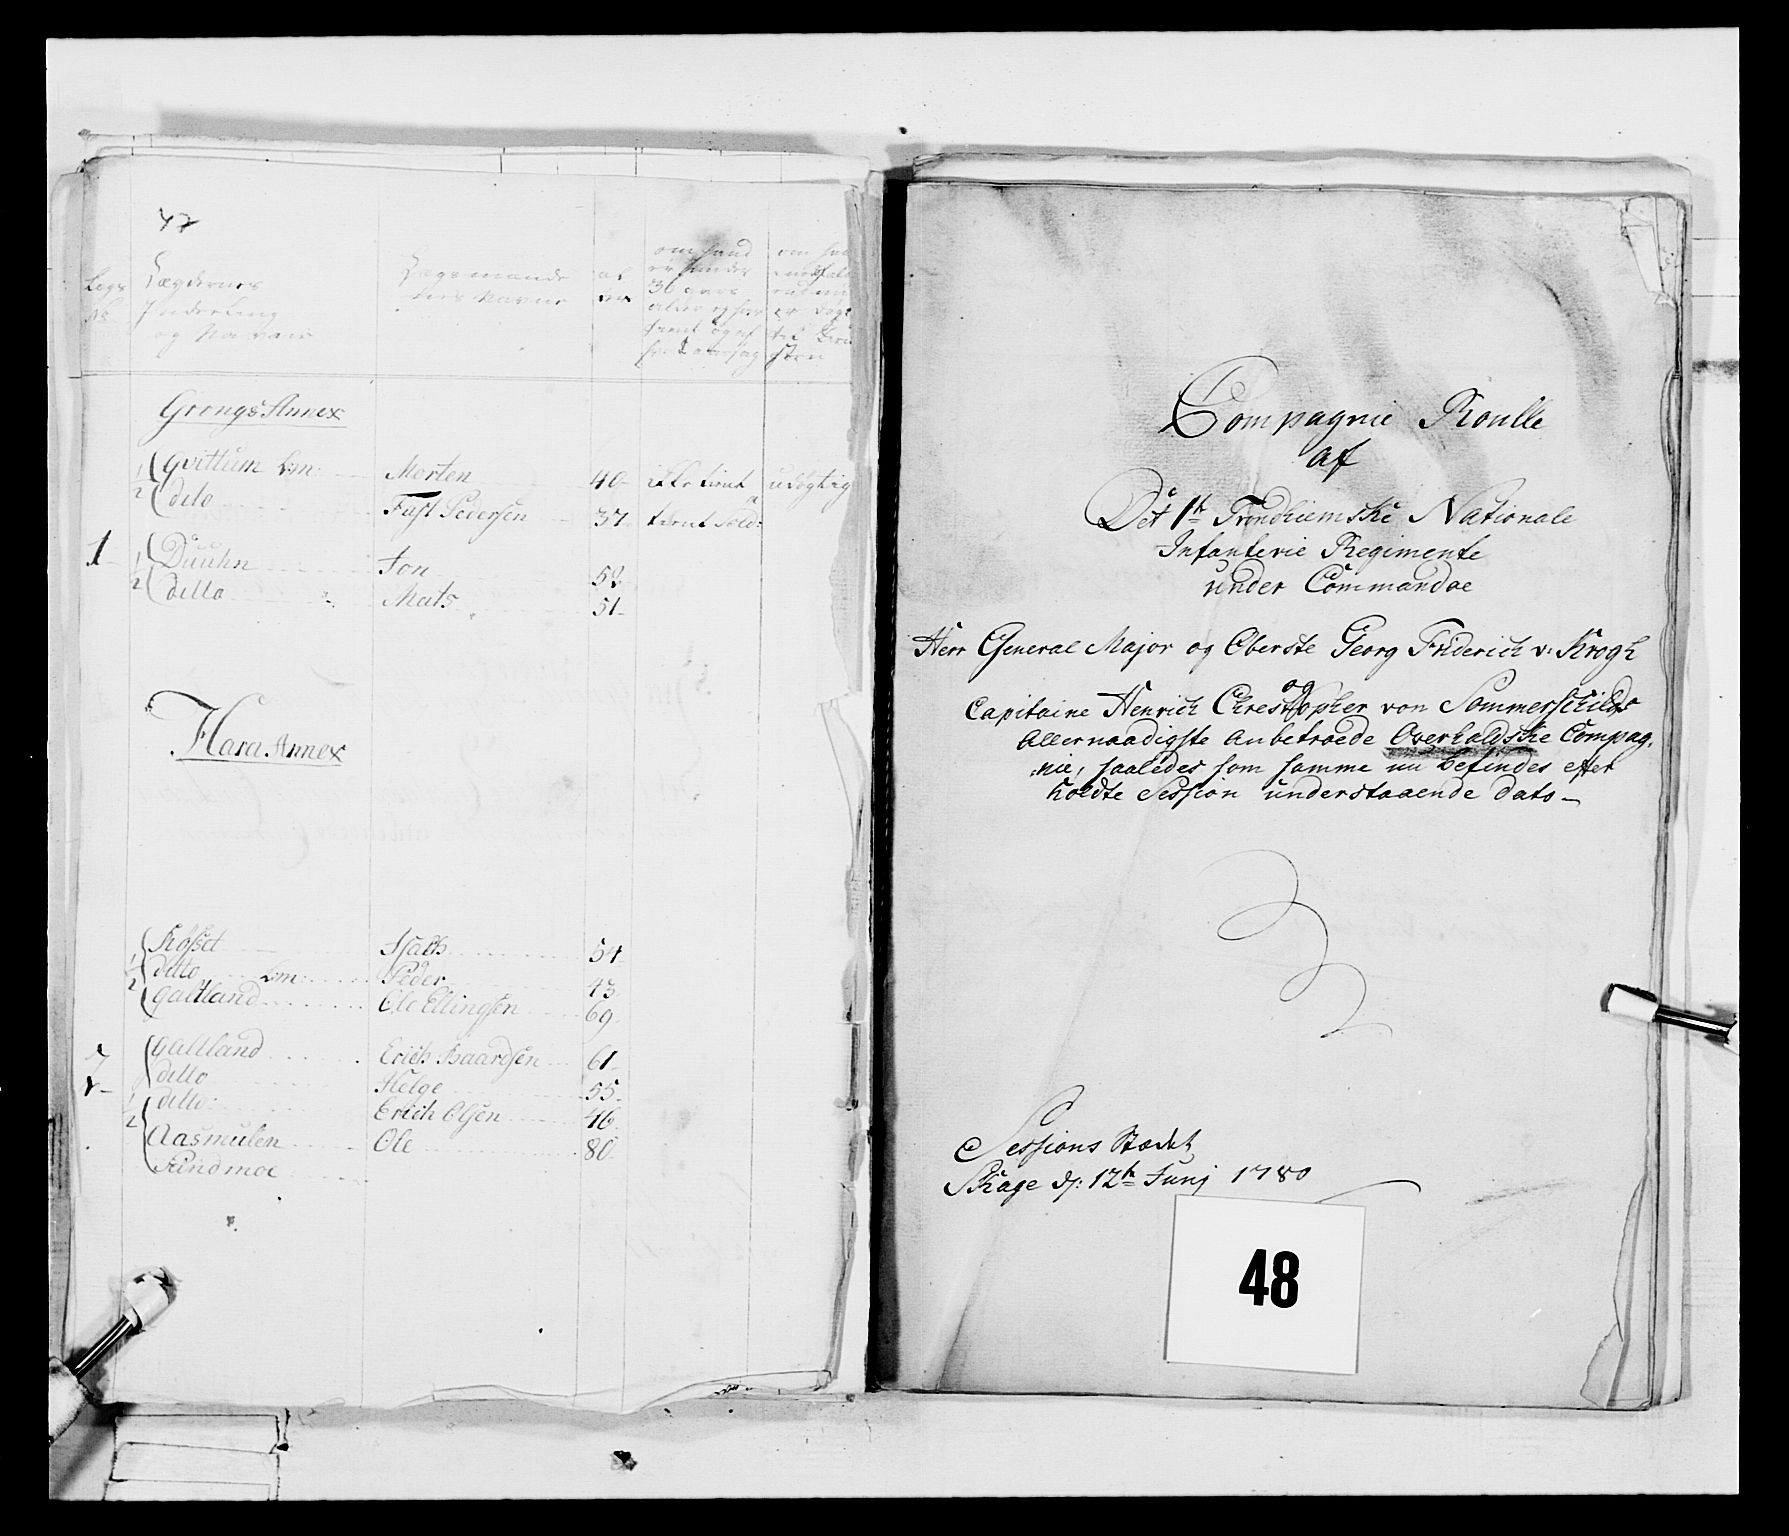 47
Legs
No
Lægdernes
Inddeeling
og Navne
Lægsmænde
nes Navne
al
der
om hand
er under
36 aars
alder og har
tient og af
om hand
Grongs Annex
1 Gvittum Lm: Morten 40 ikke tient udögtig
2 dito Fast Pedersen 37 tient Sold:
1
1 Duuhn Jon 52
2 ditto Mats 51
Hara Annex
Rosset Isach 54
1 ditto Lm: Peder 43
2 Galtland Ole Ellingsen 69
Galtland Erich Baardsen 61
ditto Helge 55
1 ditto Erich Olsen 46
2 Aasmulen Ole 80
Sandmoe
Compagnie Roulle
af
Det 1te Trondhiemske Nationale
Infanterie Regimente
under Commandoe
Herr General Major og Oberste Georg Friderich v: Krogh
og
Capitaine Henrich Christopher von Sommerschilds
Allernaadigste Anbetroede Overhaldske Compag-
nie, saaledes som samme nu befindes efter
holdte Session understaaende dato
Sessions Stædet
Skage d: 12te Junj 1780
48